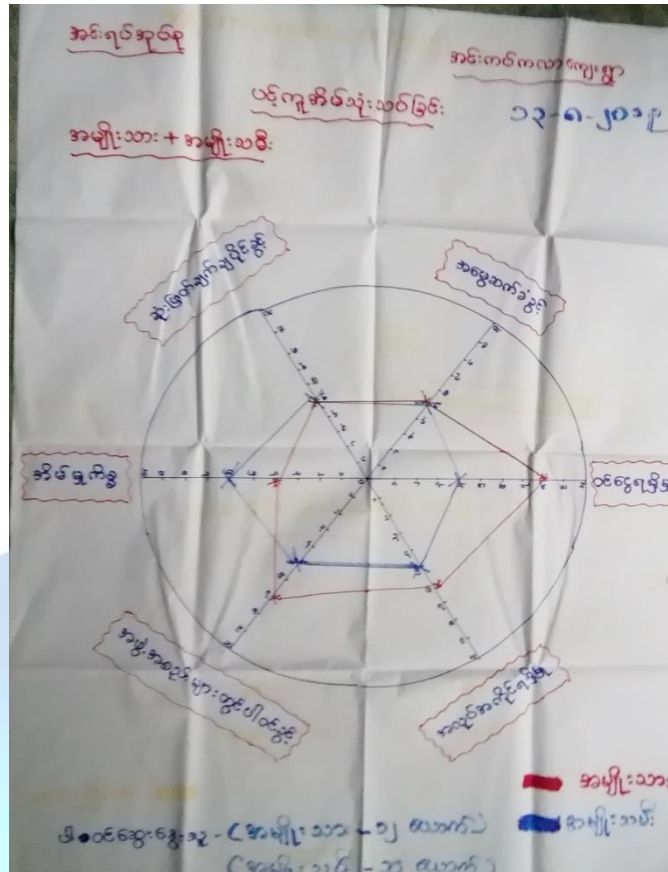 အင်းရပ်အုပ်စု
အင်းကပ်ကလာကျေးရွာ
ပင့်ကူအိမ်သုံးသပ်ခြင်း
၁၃-၈-၂၀၁၉
အမျိုးသား + အမျိုးသမီး
ဆုံးဖြတ်ချက်ချပိုင်ခွင့်
အမွေဆက်ခံခွင့်
အိမ်မှုကိစ္စ
ဝင်ငွေရရှိမှု
အဖွဲ့အစည်းများတွင်ပါဝင်ခွင့်
အလုပ်အကိုင်ရရှိမှု
အမျိုးသား
ပါဝင်ဆွေးနွေးသူ - (အမျိုးသား - ၁၂ ယောက်)
အမျိုးသမီး
(အမျိုးသမီး - ယောက်)